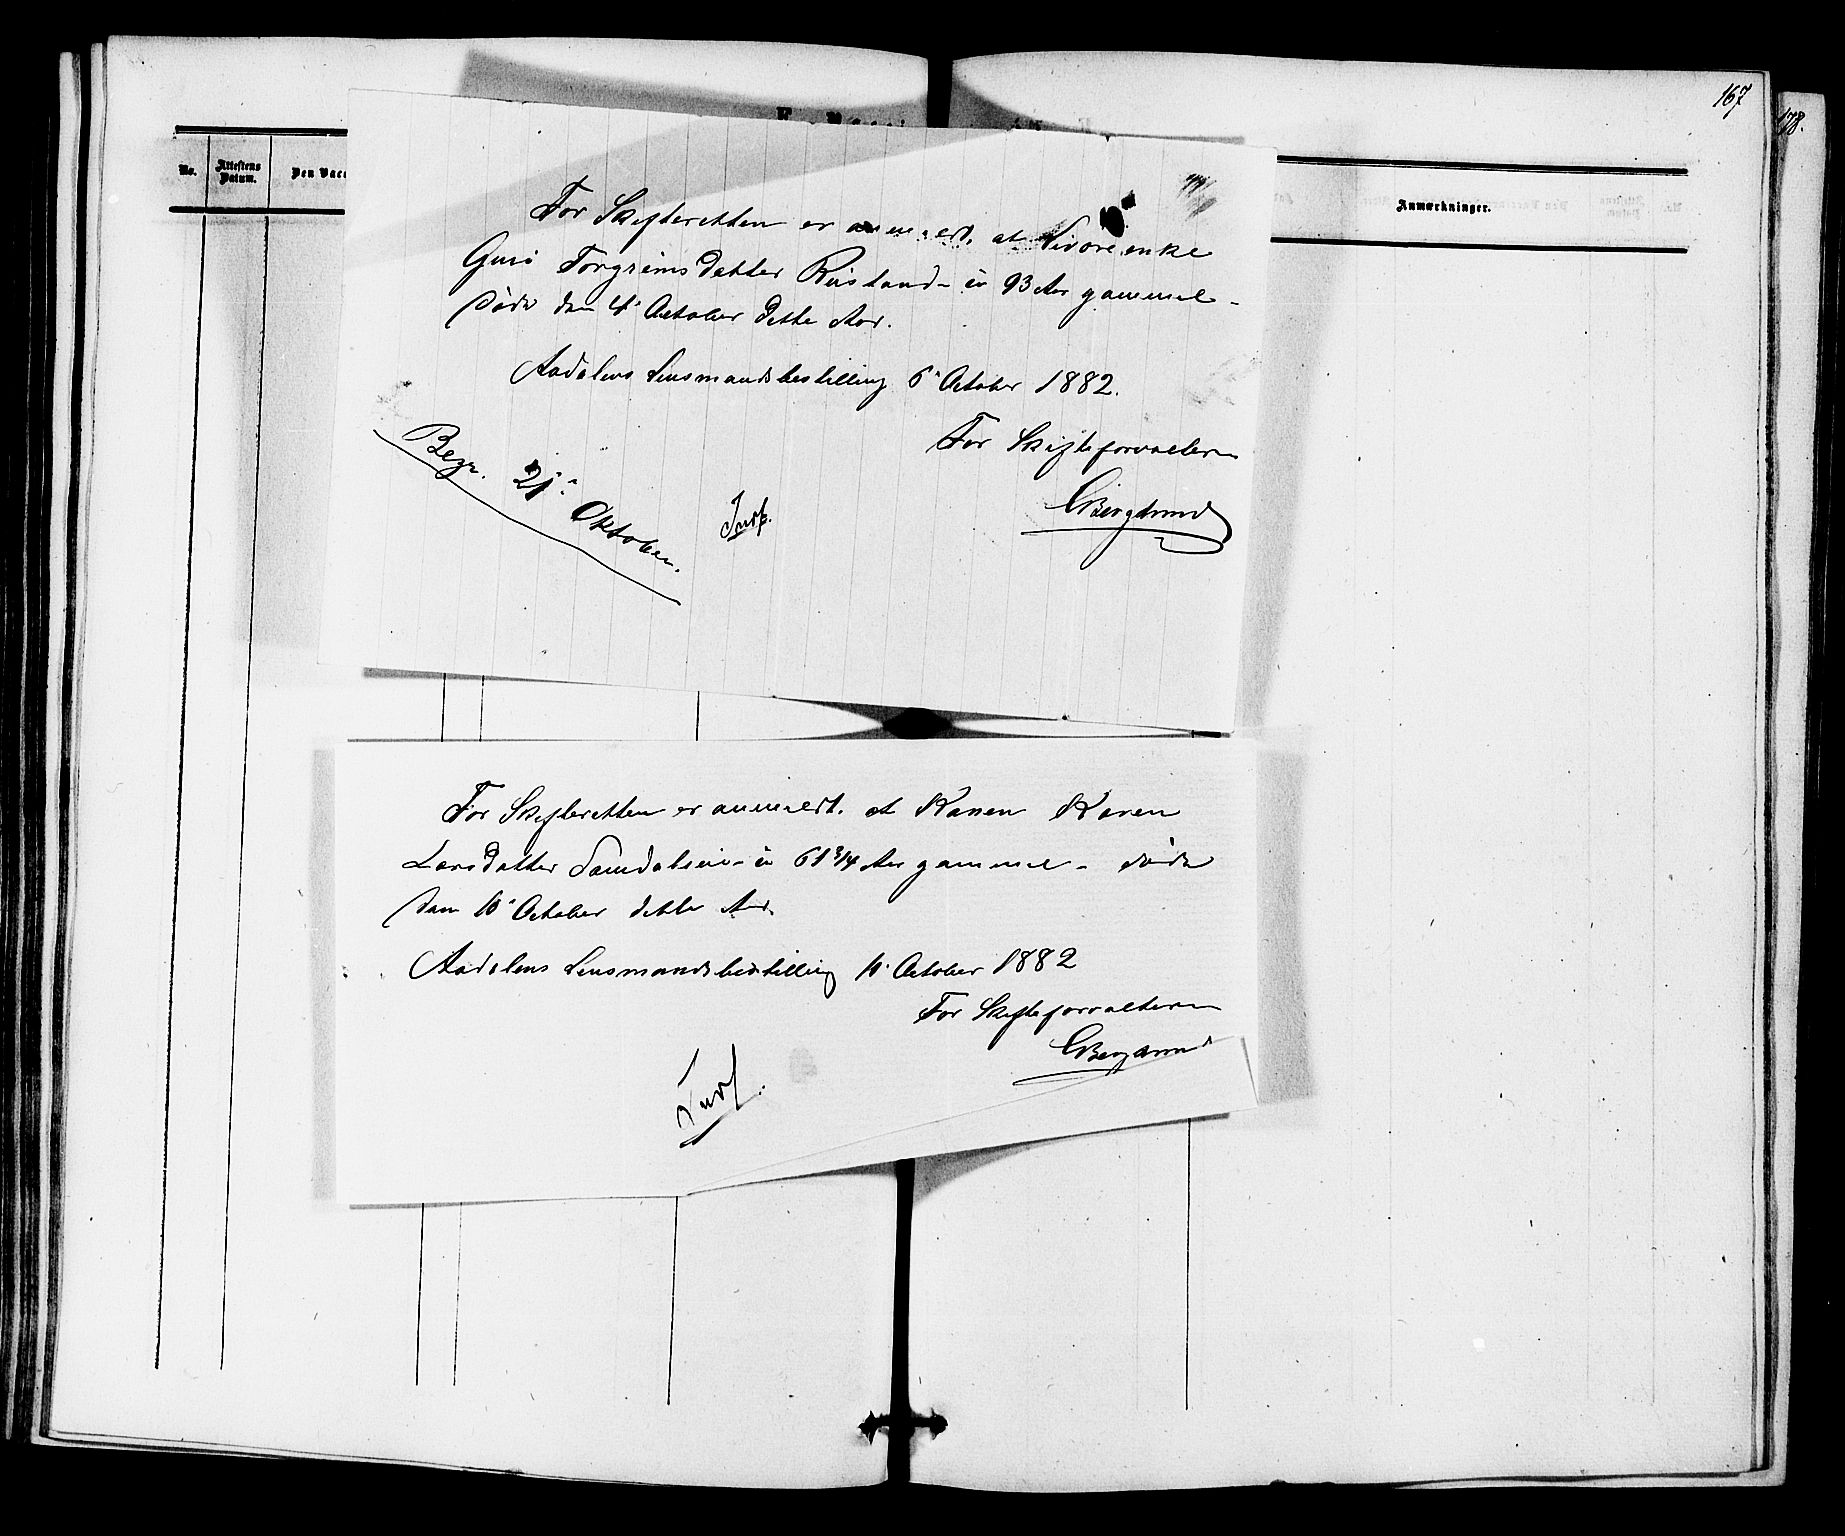 167
178.
No.
Attestens
Datum.
Den Vacc
Anmærkninger.
For Skifteretten er anmeldt, at Livøreenke
Guri Torgrimsdatter Rustand - 93 Aar gammel -
døde den 4' October dette Aar.
Aadalens Lensmandsbestilling 6' October 1882.
For Skifteforvalteren
CBerglund
Begr. 21' Oktober.
Indf.
For Skifteretten er anmeldt, at Konen Karen
Larsdatter - 61 3/4 Aar gammel - døde
den 10' October dette Aar.
Aadalens Lensmandsbestilling 11' October 1882
For Skifteforvalteren
CBerglund
Indf.